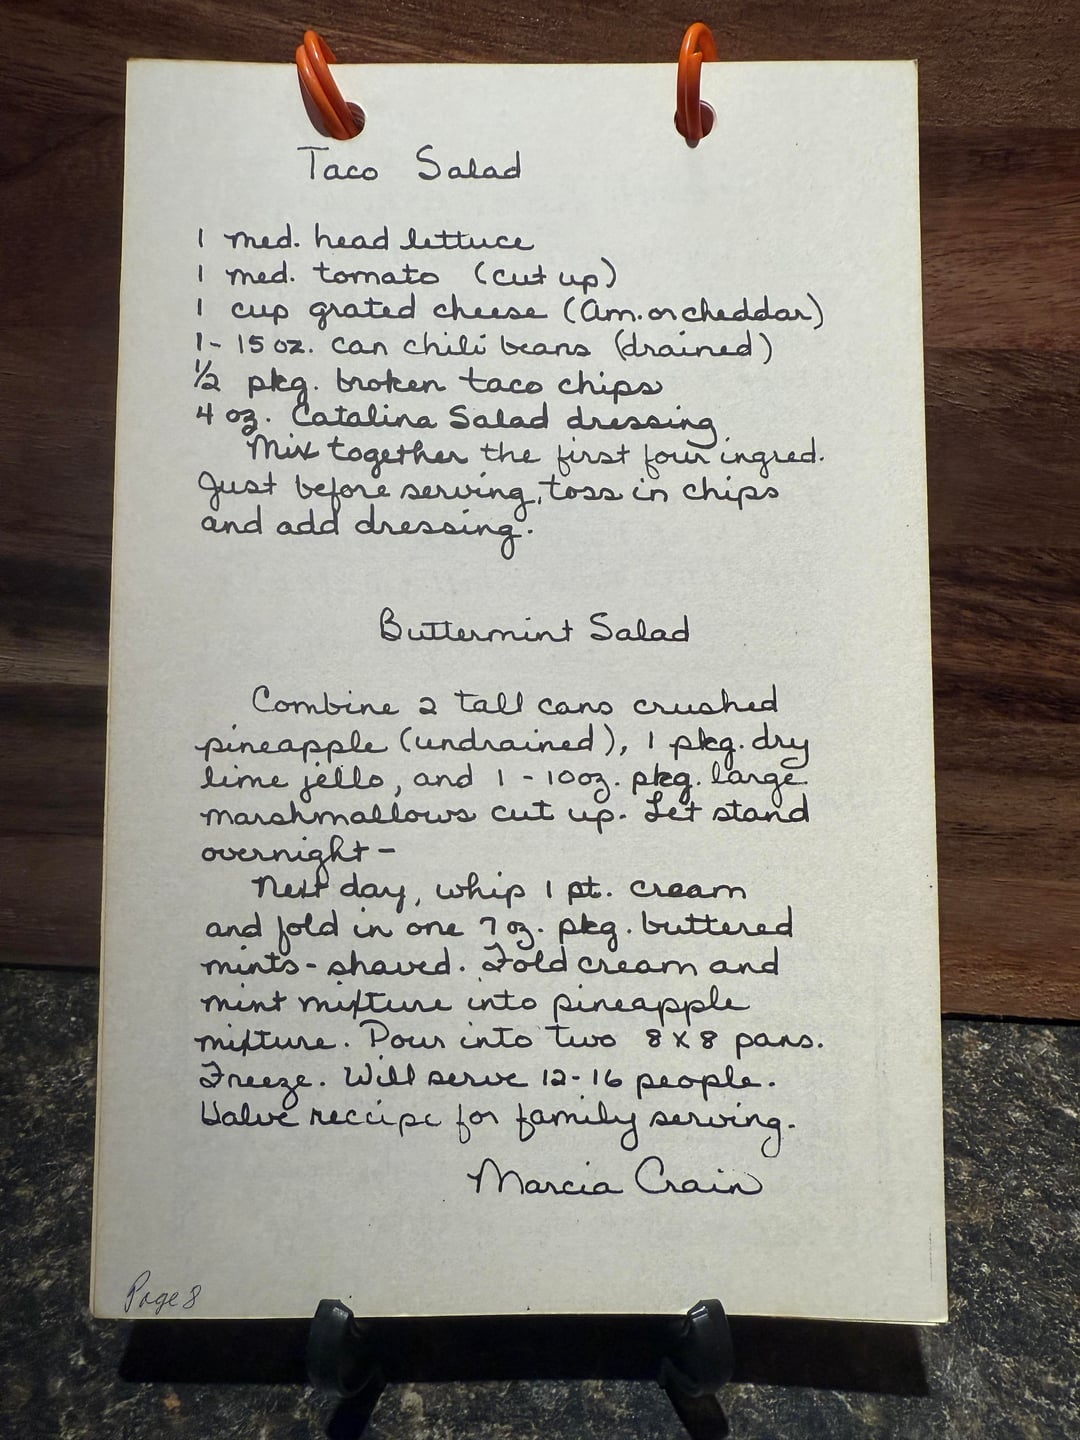 Taco Salad
1 med. head lettuce
1 med. tomato (cut up)
1 cup grated cheese (Am. or cheddar)
1 - 15 oz. can chili beans (drained)
1/2 pkg. broken taco chips
4 oz. Catalina Salad dressing
Mix together the first four ingred.
Just before serving, toss in chips
and add dressing.
Buttermint Salad
Combine 2 tall cans crushed
pineapple (undrained), 1 pkg. dry
lime jello, and 1 - 10 oz. pkg. large
marshmallows cut up. Let stand
overnight -
Next day, whip 1 pt. cream
and fold in one 7 oz. pkg. buttered
mints - shaved. Fold cream and
mint mixture into pineapple
mixture. Pour into two 8 x 8 pans.
Freeze. Will serve 12-16 people.
Halve reccipe for family serving.
Marcia Crain
Page 8